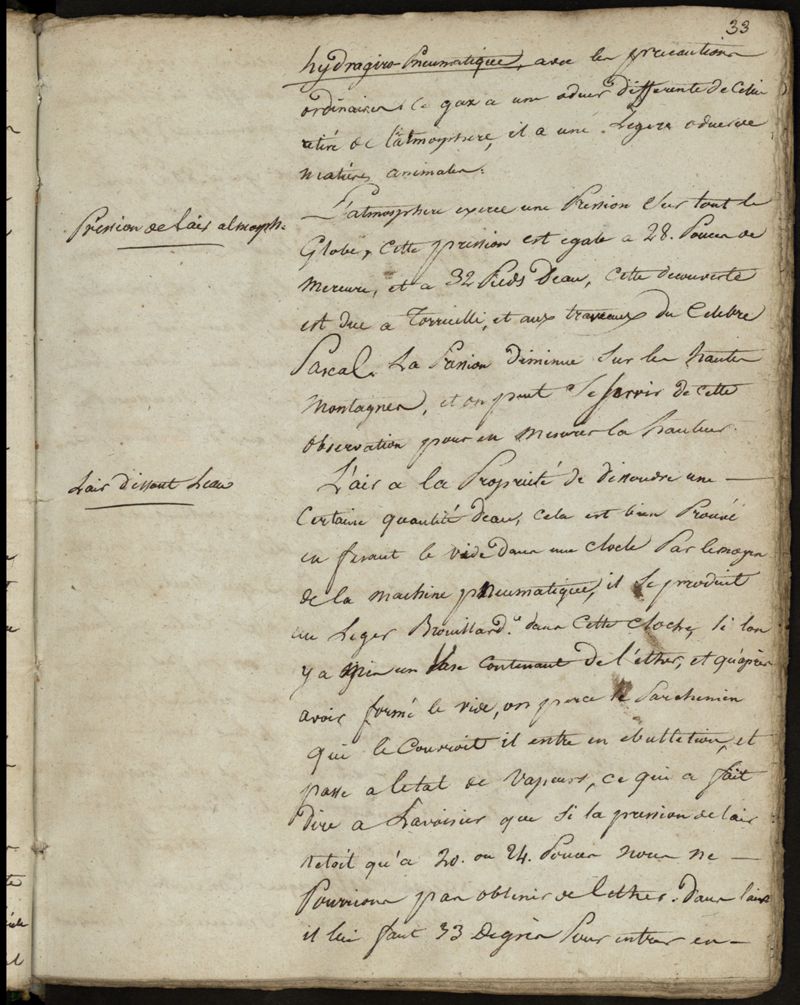 33
hydragiro-Pneumatique, avec les precautions
ordinaires. Ce gax a une oduer differente de Celui
retiré de l'atmosphere, il a une Legere oduer de
matieres animales.
Pression de lair atmosph.
L'atmosphere exerce une Pression Sur tout le
Globe, Cette pression est egale a 28. Pouces de
Mercure, et a 32 Pieds Deau, Cette decouverte
est due a Torricelli, et aux traveaux du Celebre
Pascal. La Pression diminue Sur les hautes
Montagnes, et on peut Se servir de cette
Observation pour en Mesurer la hauteur.
Lair dissout Leau
L'air a la Propriété de dissoudre une —
Certaine quantité deau, Cela est bien Prouvé
en fesant le vide dans une cloche Par lemoyen
de la machine pneumatique, il Se produit
un Leger Brouillard dans Cette Cloche, Si lon
y a Mis un Vase Contenant de l'ether, et qu'après
avoir formé le vide, on perce le Parchemin
qui le Couvroit il entre en ebulletion, et
passe a letat de Vapeurs, ce qui a fait
Dire a Lavoisier que Si la pression de lair
netoit qu'a 20. ou 24. Pouces Nous Ne —
Pourrions pas obtenir de lether. Dans lair
il lui faut 33 Degrés Pour entrer en —